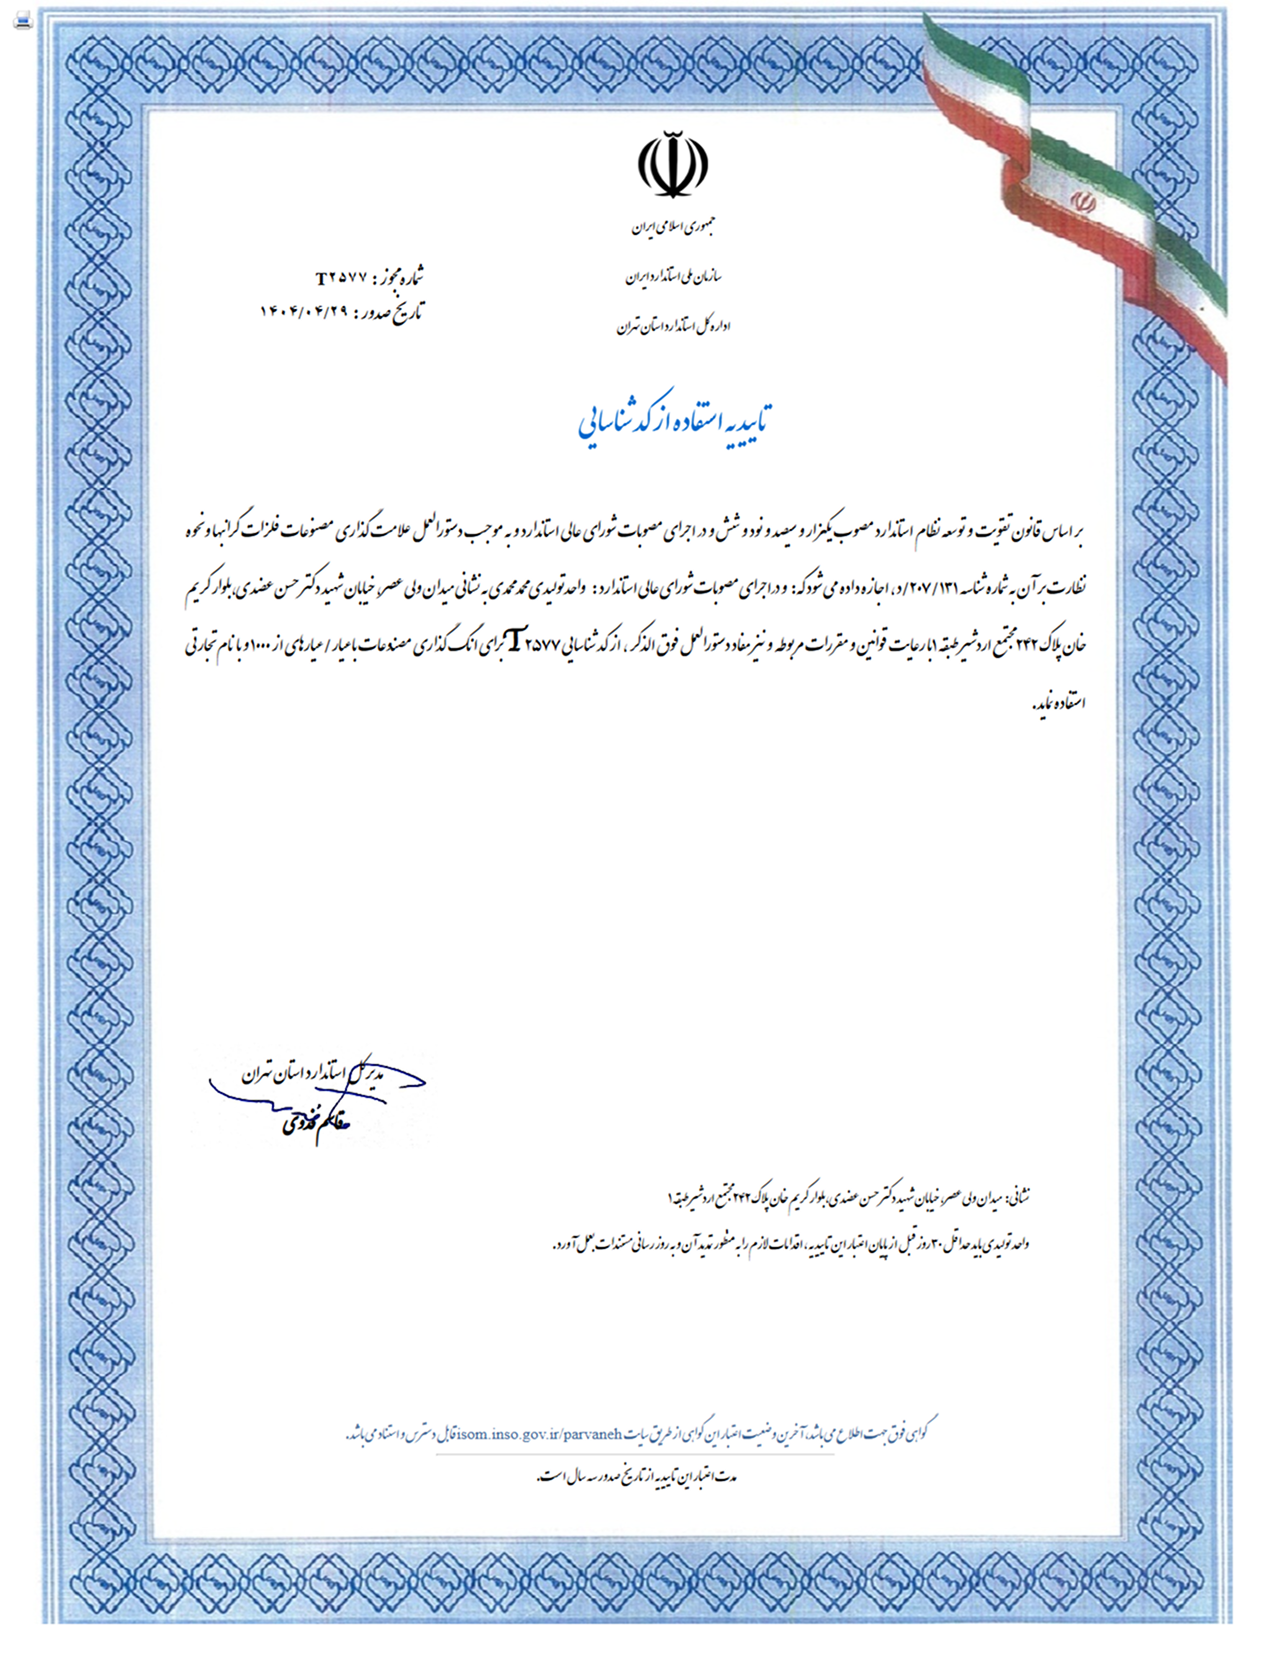 جمهوری اسلامی ایران
سازمان ملی استاندارد ایران
اداره کل استاندارد استان تهران
شماره مجوز : T۲۵۷۷
تاریخ صدور : ۱۴۰۴/۰۴/۲۹
تاییدیه استفاده از کد شناسایی
بر اساس قانون تقویت و توسعه نظام استاندارد مصوب یکهزار و سیصد و نود و شش و در اجرای مصوبات شورای عالی استاندارد و به موجب دستورالعمل علامت گذاری مصنوعات فلزات گرانبها و نحوه
نظارت بر آن به شماره شناسه ۲۰۷/۱۳۱/د، اجازه داده می شود که: و در اجرای مصوبات شورای عالی استاندارد : واحد تولیدی محمد محمدی به نشانی میدان ولی عصر، خیابان شهید دکتر حسن عضدی، بلوار کریم
خان پلاک ۲۴۲ مجتمع اردشیر طبقه ۱ با رعایت قوانین و مقررات مربوطه و نیز مفاد دستورالعمل فوق الذکر ، از کد شناسایی T۲۵۷۷ برای انگ گذاری مصنوعات با عیار / عیارهای از ۱۰۰۰ و با نام تجارتی
استفاده نماید.
مدیر کل استاندارد استان تهران
قاسم
نشانی: میدان ولی عصر، خیابان شهید دکتر حسن عضدی، بلوار کریم خان پلاک ۲۴۲ مجتمع اردشیر طبقه ۱
واحد تولیدی باید حداقل ۳۰ روز قبل از پایان اعتبار این تاییدیه ، اقدامات لازم را به منظور تمدید آن و به روز رسانی مستندات بعمل آورد.
گواهی فوق جهت اطلاع می باشد، آخرین وضعیت اعتبار این گواهی از طریق سایت isom.inso.gov.ir/parvaneh قابل دسترس و استناد می باشد.
مدت اعتبار این تاییدیه از تاریخ صدور سه سال است.